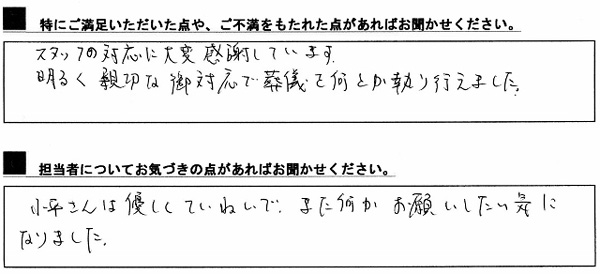 ■ 特にご満足いただいた点や、ご不満をもたれた点があればお聞かせください。
スタッフの対応に大変感謝しています。
明るく親切な御対応で葬儀を何とか執り行えました。
■ 担当者についてお気づきの点があればお聞かせください。
小平さんは優しくていねいで、また何かお願いしたい気に
なりました。